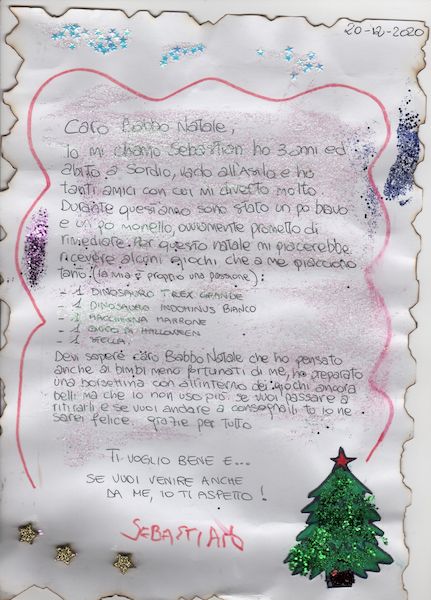 20-12-2020
Caro Babbo Natale,
Io mi chiamo Sebastian ho 3 anni ed
abito a Sordio, vado all'Asilo e ho
tanti amici con cui mi diverto molto.
Durante quest'anno sono stato un po bravo
e un po monello, ovviamente prometto di
rimediare. Per questo natale mi piacerebbe
ricevere alcuni giochi che a me piacciono
tanto: (la mia è proprio una passione):
- 1 DINOSAURO T-REX GRANDE
- 1 DINOSAURO INDOMINUS BIANCO
- 1 MACCHINA MARRONE
- 1 DI HALLOWEEN
- 1 STELLA
Devi sapere caro Babbo Natale che ho pensato
anche ai bimbi meno fortunati di me, ho preparato
una borsettina con all'interno dei giochi ancora
belli ma che io non uso più. Se vuoi passare a
ritirarli e se vuoi andare a consegnarli tu io ne
sarei felice. grazie per tutto
TI VOGLIO BENE E...
SE VUOI VENIRE ANCHE
DA ME, IO TI ASPETTO!
SEBASTIAN